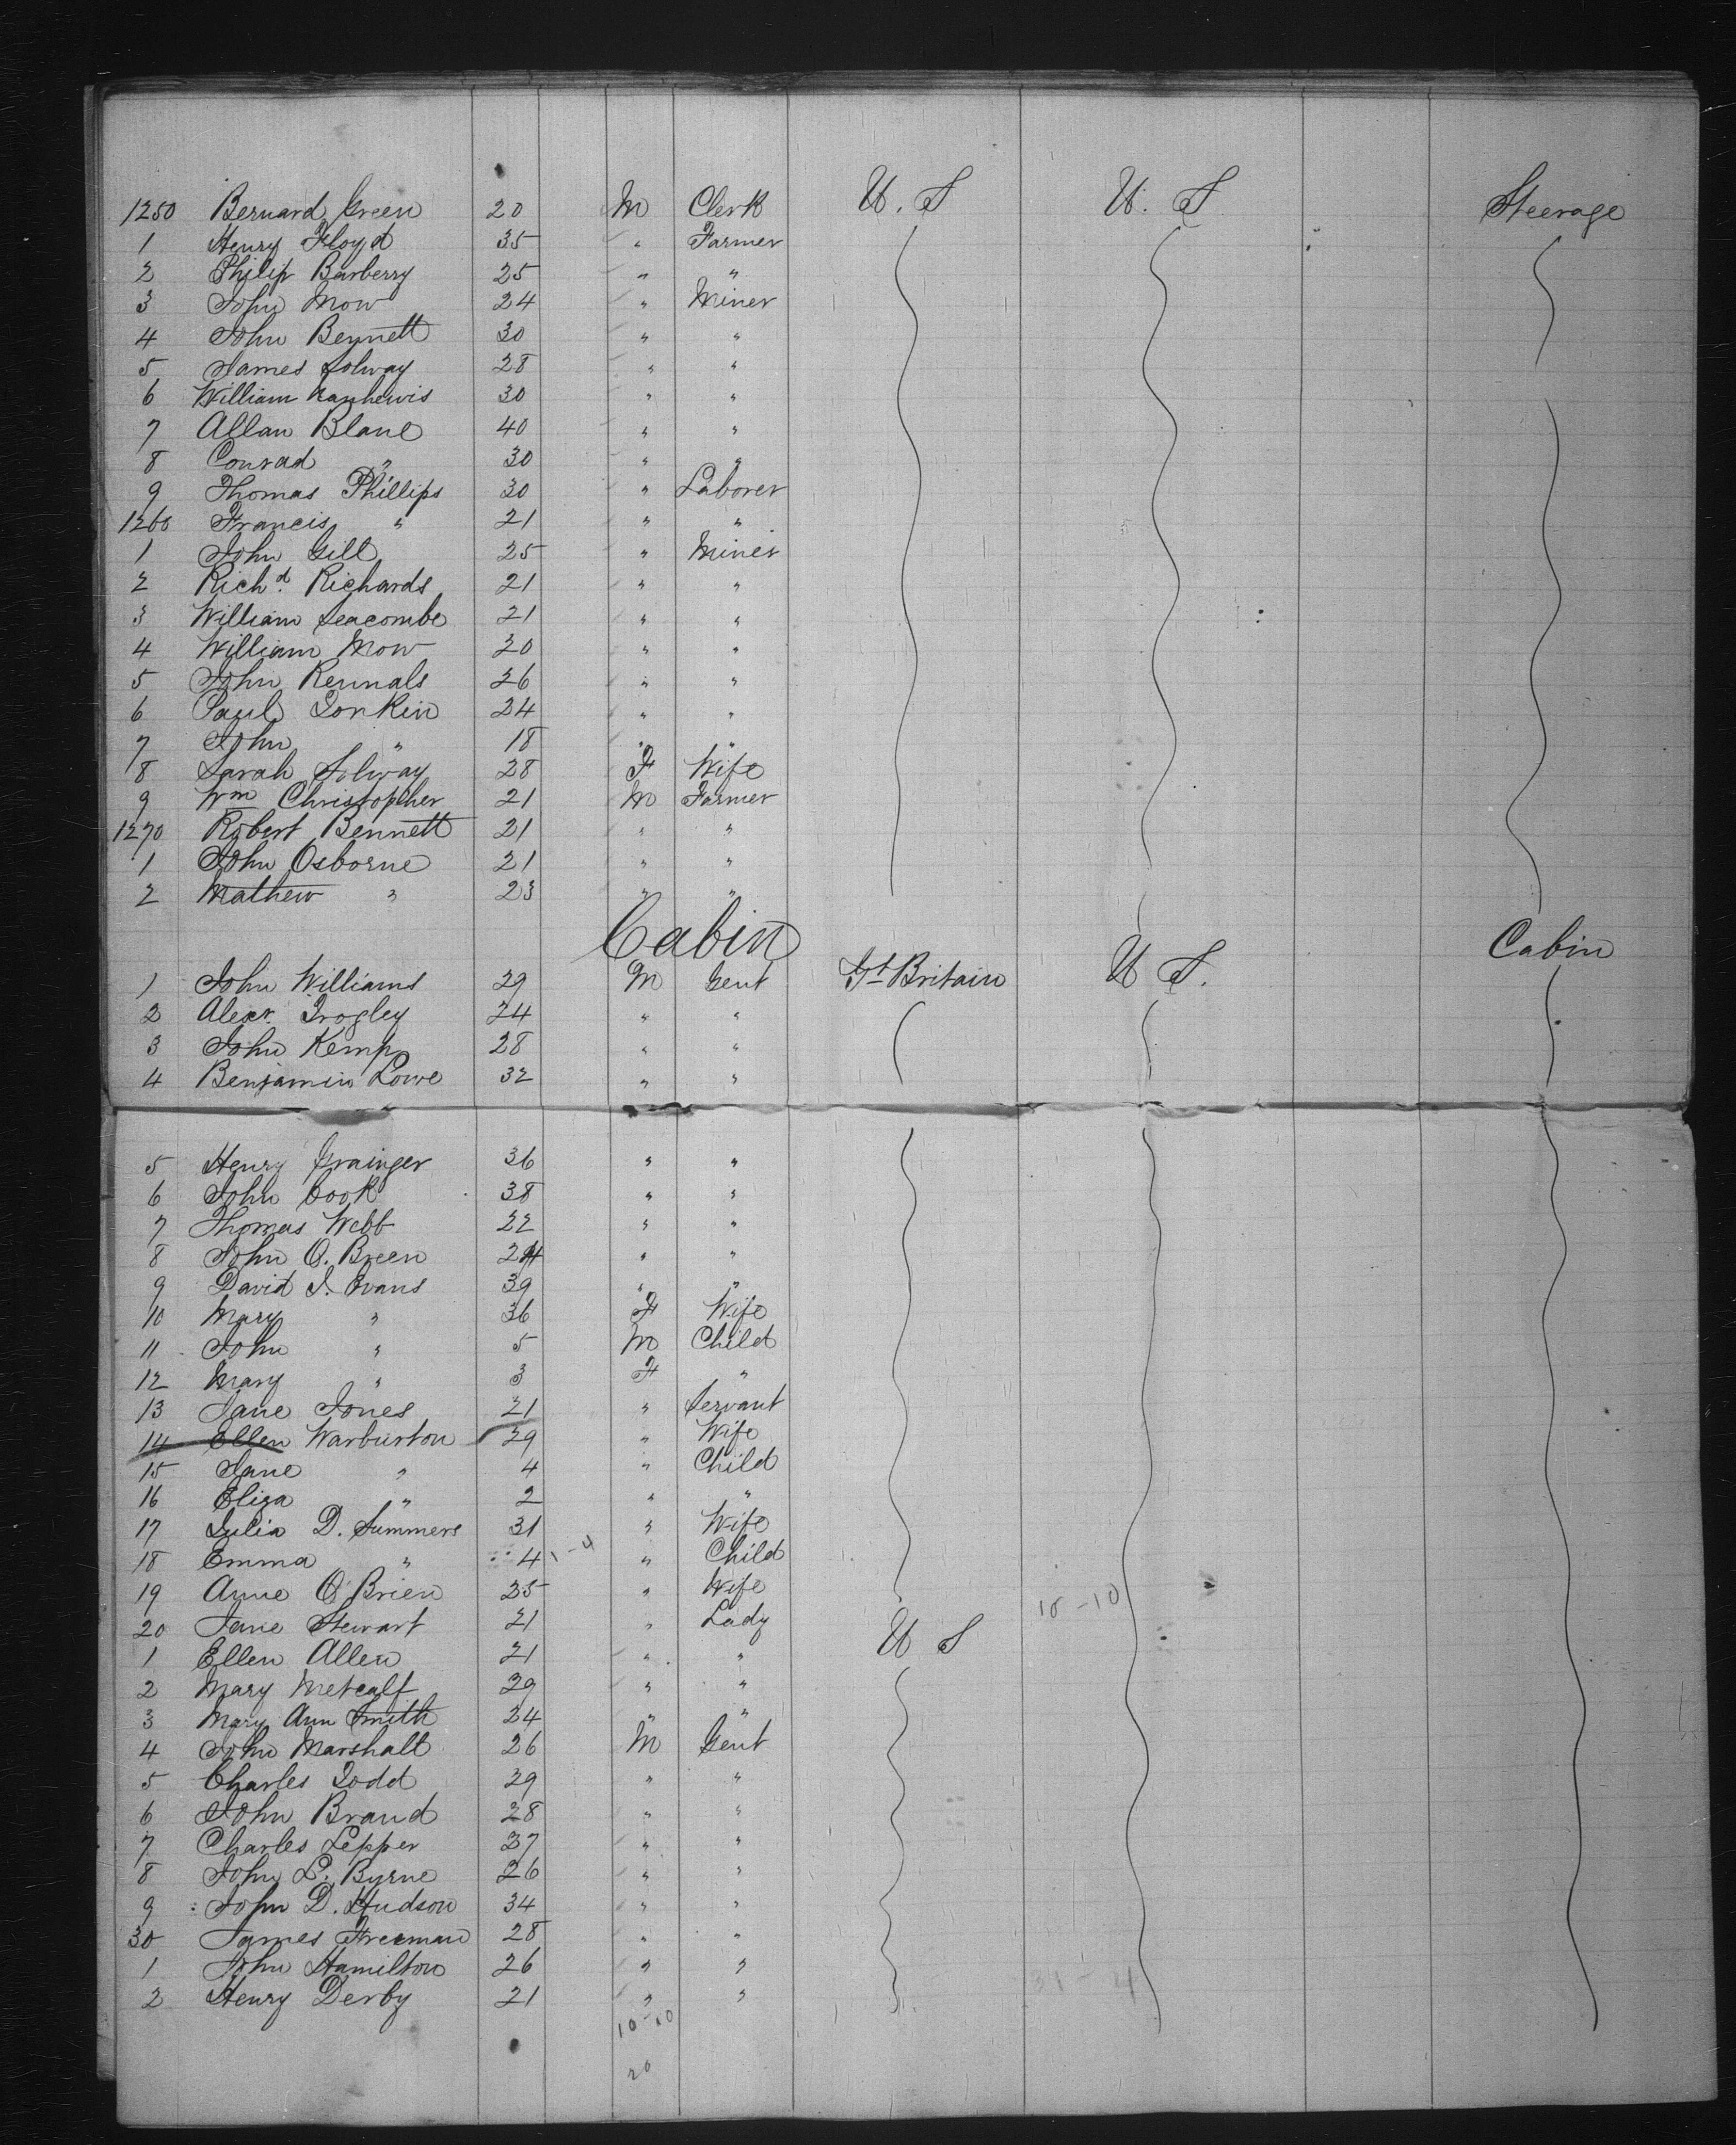 1250 Bernard Green 20 M Clerk U. S U. S Steerage
1 Henry Floyd 35 " Farmer
2 Philip Barberry 25 " "
3 John Mow 24 " Miner
4 John Bennett 30 " "
5 James Solway 28 " "
6 William 30 " "
7 Allan Blane 40 " "
8 Conrad " 30 " "
9 Thomas Phillips 30 " Laborer
1260 Francis " 21 " "
1 John Gill 25 " Miner
2 Richd. Richards 21 " "
3 William Seacombe 21 " "
4 William Mow 20 " "
5 John Rennals 26 " "
6 Paul Tonkin 24 " "
7 John " 18 " "
8 Sarah Solway 28 F Wife
9 Wm Christopher 21 M Farmer
1270 Robert Bennett 21 " "
1 John Osborne 21 " "
2 Mathew " 23 " "
Cabin Cabin
1 John Williams 29 M Gent Gt Britain U S.
2 Alexr. Trogley 24 " "
3 John Kemp 28 " "
4 Benjamin Lowe 32 " "
5 Henry Grainger 36 " "
6 John Cook 38 " "
7 Thomas Webb 22 " "
8 John O. Breen 24 " "
9 David J. Evans 39 " "
10 Mary " 36 F Wife
11 John " 5 M Child
12 Mary " 3 F "
13 Jane Jones 21 " Servant
14 Ellen Warburton 29 " Wife
15 Jane " 4 " Child
16 Eliza " 2 " "
17 Julia D. Summers 31 " Wife
18 Emma " 4 1-4 " Child
19 Anne O'Brien 25 " Wife
20 Jane Stewart 21 " Lady U S 10-10
1 Ellen Allen 21 " "
2 Mary Metcalf 29 " "
3 Mary Ann Smith 24 " "
4 John Marshall 26 M Gent
5 Charles Todd 29 " "
6 John Brand 28 " "
7 Charles Lepper 37 " "
8 John L. Byrne 26 " "
9 John D. Hudson 34 " "
30 James Freeman 28 " "
1 John Hamilton 26 " " 31-4
2 Henry Derby 21 " "
10-10
20